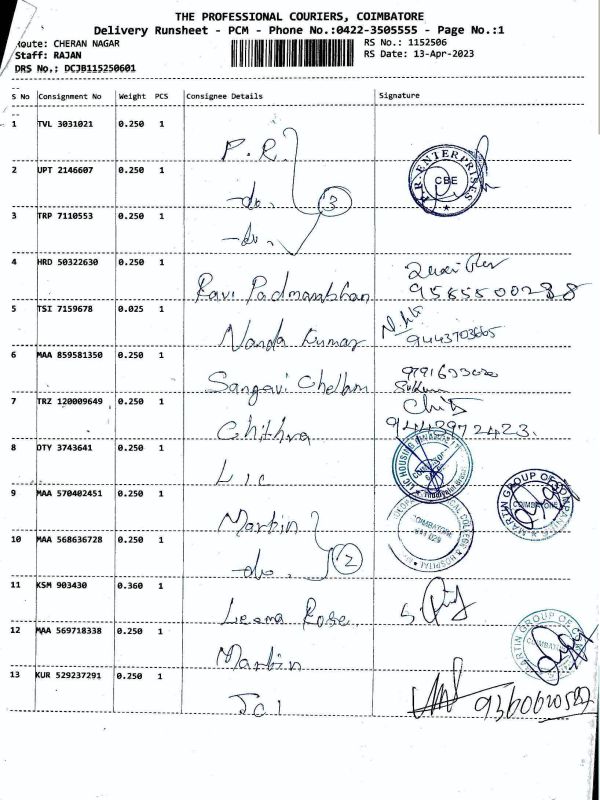 THE PROFESSIONAL COURIERS, COIMBATORE
Delivery Runsheet - PCM - Phone No.:0422-3505555 - Page No.:1
Route: CHERAN NAGAR RS No.: 1152506
Staff: RAJAN RS Date: 13-Apr-2023
DRS No.: DCJB115250601
S No Consignment No Weight PCS Consignee Details Signature
1 TVL 3031021 0.250 1 P.R.
2 UPT 2146607 0.250 1 -do. 3 P.R. ENTERPRISES CBE
3 TRP 7110553 0.250 1 -do.
4 HRD 50322630 0.250 1 Ravi Padmanabhan
5 TSI 7159678 0.025 1 Nanda Kumar 9443703665
6 MAA 859581350 0.250 1 Sangavi Chellam
7 TRZ 120009649 0.250 1 Chithra 9442972423.
8 OTY 3743641 0.250 1 Lic
9 MAA 570402451 0.250 1 Martin MARTIN GROUP OF COMPANIES COIMBATORE
10 MAA 568636728 0.250 1 -do. 2 COLLEGE & HOSPITAL COIMBATORE
11 KSM 903430 0.360 1 Leema Rose
12 MAA 569718338 0.250 1 Martin MARTIN GROUP OF
13 KUR 529237291 0.250 1